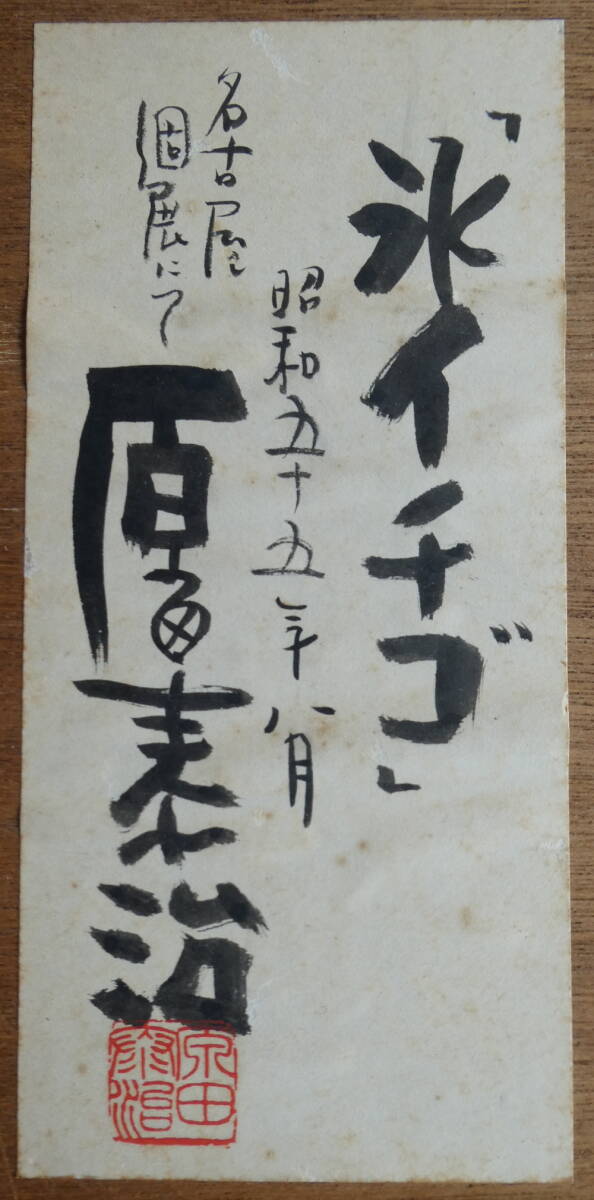 「氷イチゴ」
昭和五十五年八月
名古屋
個展にて
原田泰治
原田
泰治